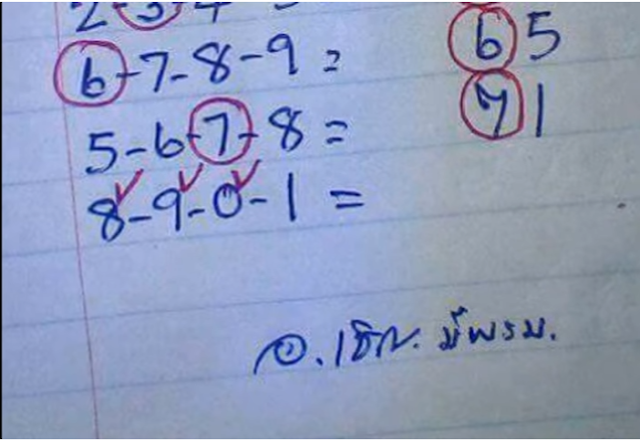 2-3-4
6-7-8-9 = 65
5-6-7-8 = 71
8-9-0-1 =
อ.เชิญ. มีพรม.